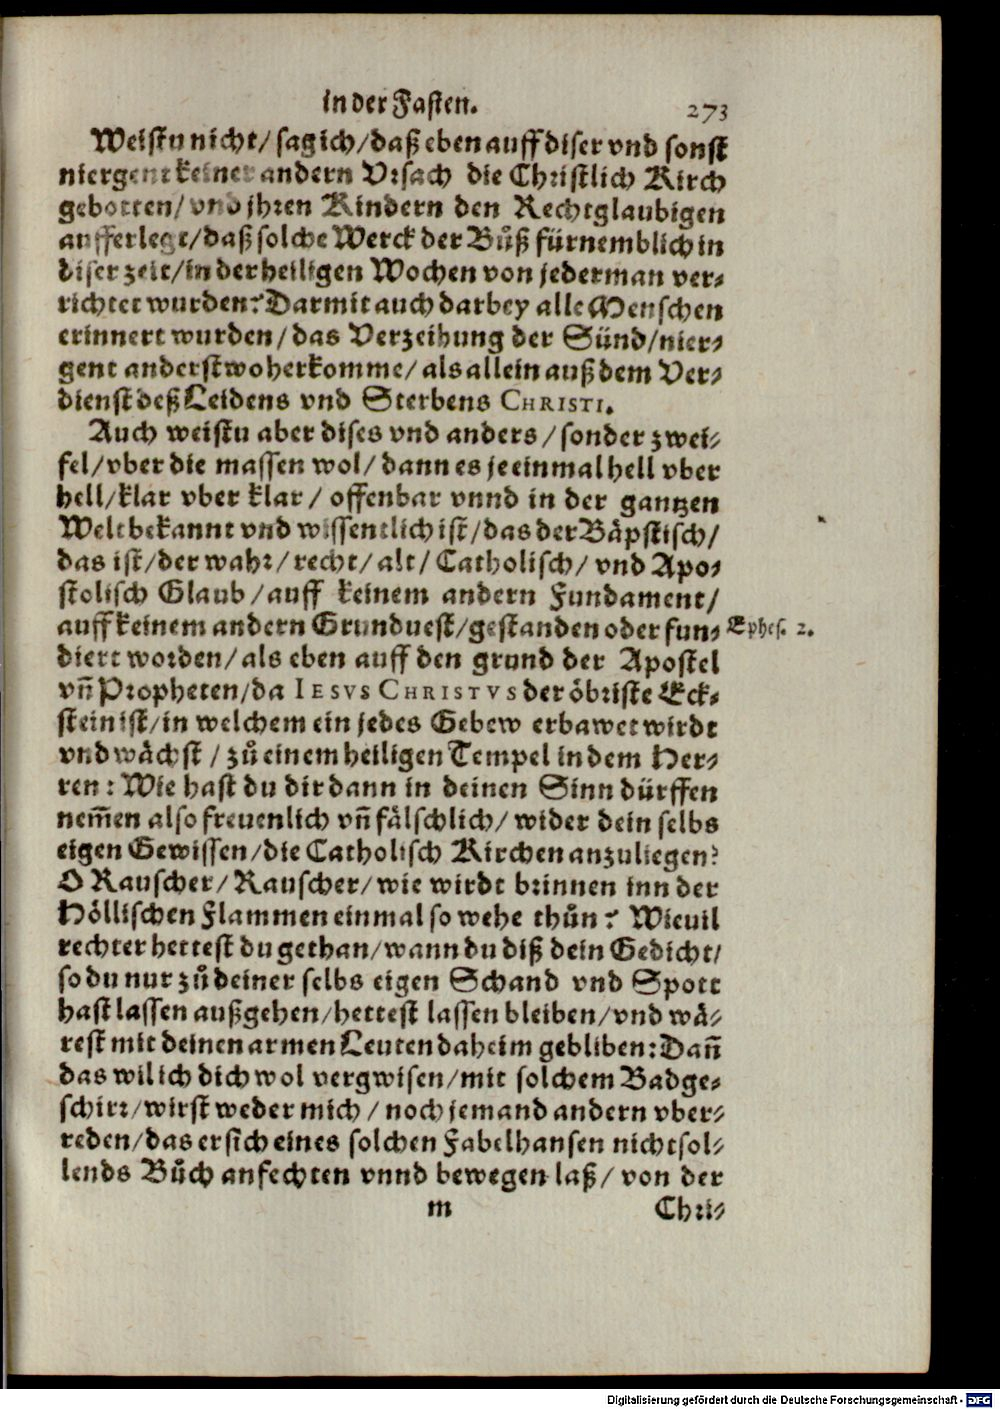 in der Fasten. 273
Weistu nicht/ sag ich/ daß eben auff diser vnd sonst
niergent keiner andern Vrsach die Christlich Kirch
gebotten/ vnd jhren Kindern den Rechtglaubigen
aufferlegt/ daß solche Werck der Bůß fürnemblich in
diser zeit/ in der heiligen Wochen von jederman ver⸗
richtet wurden? Darmit auch darbey alle Menschen
erinnert wurden/ das Verzeihung der Sünd/ nier⸗
gent anderstwoher komme/ als allein auß dem Ver⸗
dienst deß Leidens vnd Sterbens CHRISTI.
Auch weistu aber dises vnd anders/ sonder zwei⸗
fel/ vber die massen wol/ dann es je einmal hell vber
hell/ klar vber klar/ offenbar vnnd in der gantzen
Welt bekannt vnd wissentlich ist/ das der Bäpstisch/
das ist/ der wahr/ recht/ alt/ Catholisch/ vnd Apo⸗
stolisch Glaub/ auff keinem andern Fundament/
auff keinem andern Grunduest/ gestanden oder fun⸗
Ephes. 2.
diert worden/ als eben auff den grund der Apostel
vn̄ Propheten/ da IESVS CHRISTVS der öbriste Eck⸗
stein ist/ in welchem ein jedes Gebew erbawet wirdt
vnd wächst/ zů einem heiligen Tempel in dem Her⸗
ren: Wie hast du dir dann in deinen Sinn dürffen
nem̄en also freuenlich vn̄ fälschlich/ wider dein selbs
eigen Gewissen/ die Catholisch Kirchen anzuliegen?
O Rauscher/ Rauscher/ wie wirdt brinnen inn der
Höllischen Flammen einmal so wehe thůn? Wieuil
rechter hettest du gethan/ wann du diß dein Gedicht/
so du nur zů deiner selbs eigen Schand vnd Spott
hast lassen außgehen/ hettest lassen bleiben/ vnd wä⸗
rest mit deinen armen Leuten daheim gebliben: Dan̄
das wil ich dich wol vergwisen/ mit solchem Badge⸗
schirr/ wirst weder mich/ noch jemand andern vber⸗
reden/ das er sich eines solchen Fabelhansen nichtsol⸗
lends Bůch anfechten vnnd bewegen laß/ von der
m Chri⸗
Digitalisierung gefördert durch die Deutsche Forschungsgemeinschaft - DFG